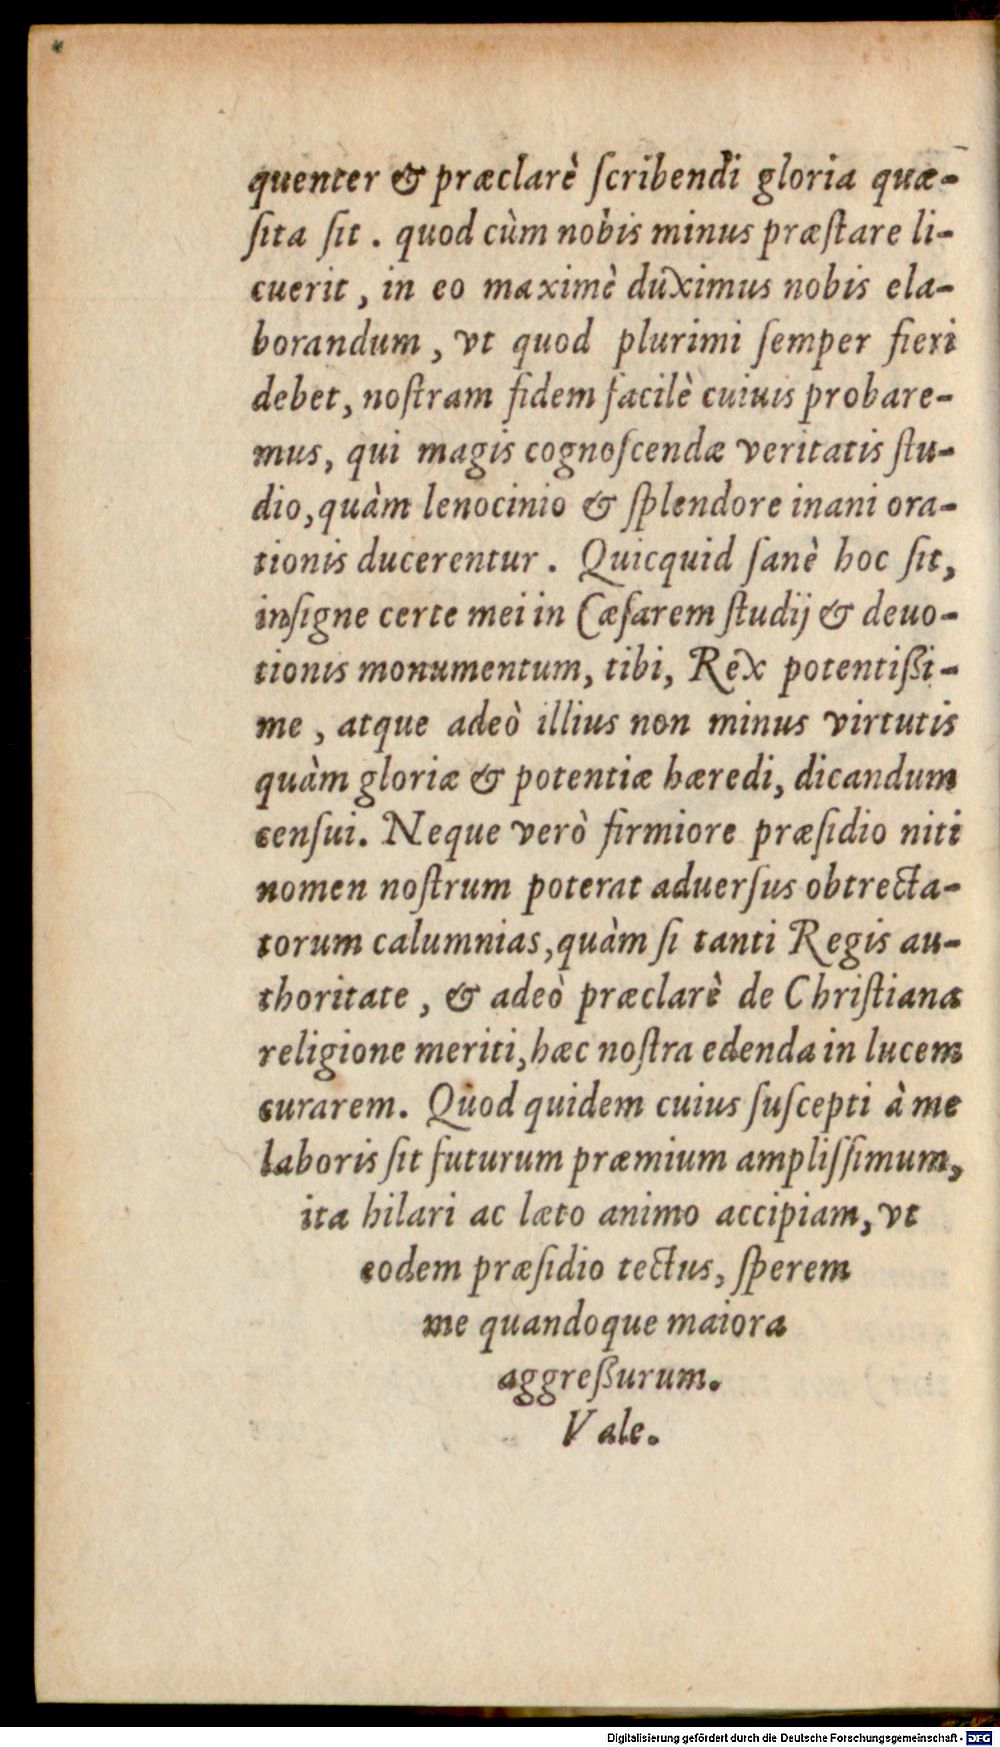 quenter & præclarè ſcribendi gloria quæ-
ſita ſit . quod cùm nobis minus præſtare li-
cuerit , in eo maximè duximus nobis ela-
borandum , vt quod plurimi ſemper fieri
debet, noſtram fidem facilè cuiuis probare-
mus, qui magis cognoſcendæ veritatis ſtu-
dio, quàm lenocinio & ſplendore inani ora-
tionis ducerentur . Quicquid ſanè hoc ſit,
inſigne certe mei in Cæſarem ſtudij & deuo-
tionis monumentum, tibi, Rex potentißi-
me , atque adeò illius non minus virtutis
quàm gloriæ & potentiæ hæredi, dicandum
cenſui. Neque verò firmiore præſidio niti
nomen noſtrum poterat aduerſus obtrecta-
torum calumnias, quàm ſi tanti Regis au-
thoritate , & adeò præclarè de Chriſtiana
religione meriti, hæc noſtra edenda in lucem
curarem. Quod quidem cuius ſuſcepti à me
laboris ſit futurum præmium ampliſſimum,
ita hilari ac læto animo accipiam, vt
eodem præſidio tectus, ſperem
me quandoque maiora
aggreßurum.
Vale.
Digitalisierung gefördert durch die Deutsche Forschungsgemeinschaft - DFG